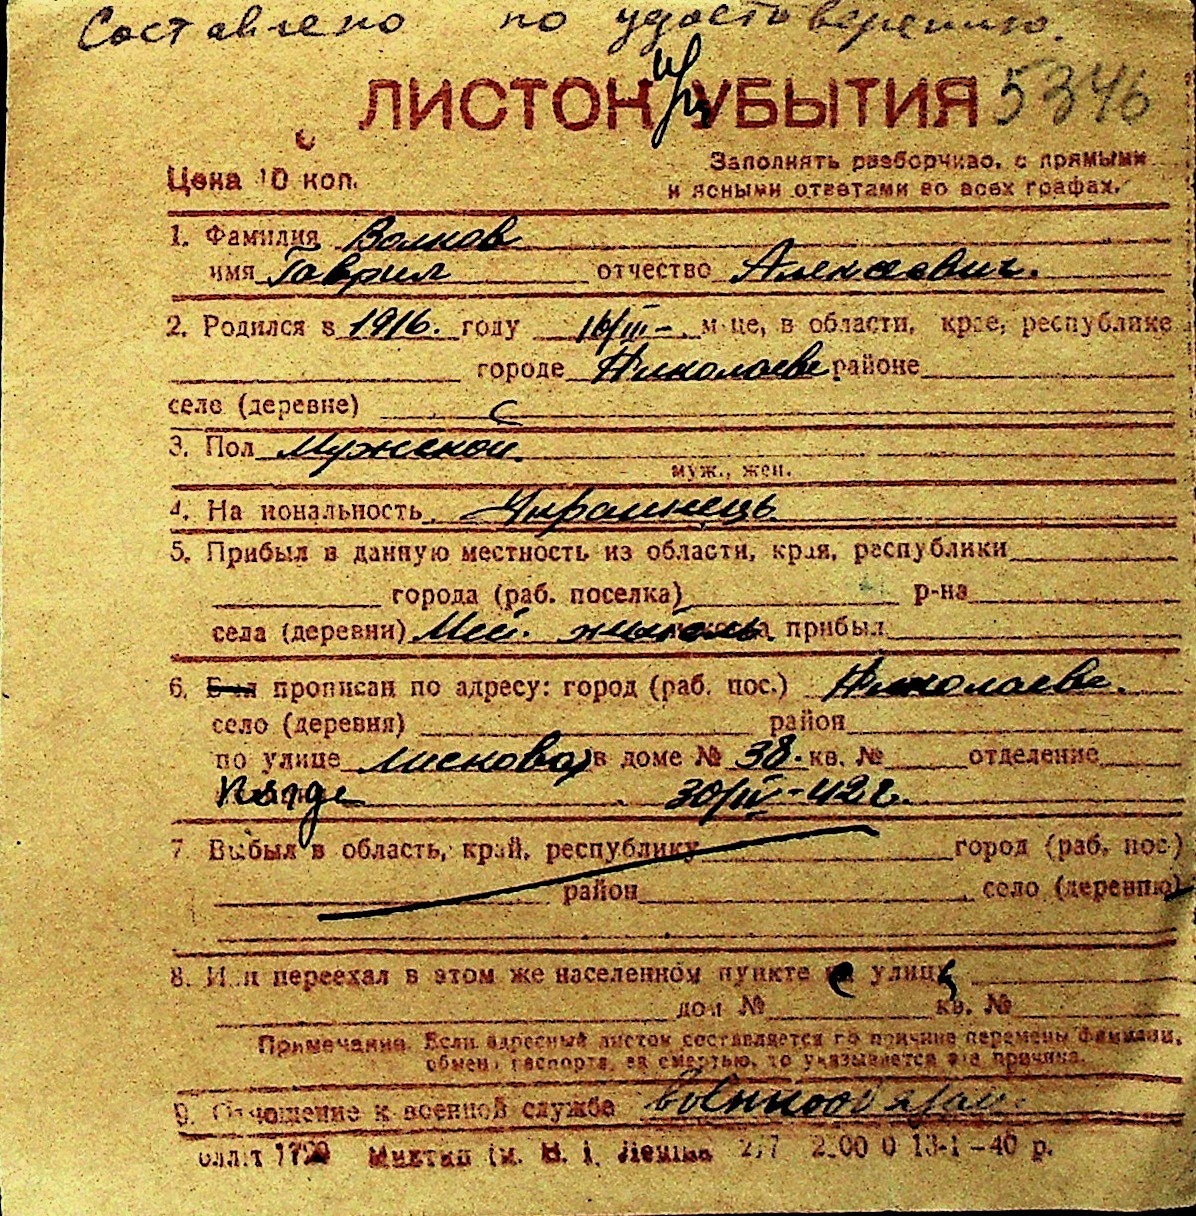 Составлено по удостоверению.
ЛИСТОК при УБЫТИЯ 5346
Цена 10 коп.
Заполнять разборчиво, с прямыми
и ясными ответами во всех графах.
1. Фамилия Волков
имя Гаврил отчество Алексеевич.
2. Родился в 1916. году 16/III- м-це, в области, крае, республике
городе Николаеве районе
селе (деревне)
3. Пол Мужской.
муж., жен.
4. На иональность Украинець
5. Прибыл в данную местность из области, края, республики
города (раб. поселка) р-на
села (деревни) Мес. житель прибыл
6. Был прописан по адресу: город (раб. пос.) Николаеве.
село (деревня) район
по улице в доме № 38. кв. № отделение
30/III-42 г.
7 Выбыл в область, край, республику город (раб. пос.)
район село (деревню)
8. Или переехал в этом же населенном пункте с улицы
дом № кв. №
Примечание. Если адресный листок составляется по причине перемены фамилии,
обмена паспорта, за смертью, то указывается эта причина.
9. Отношение к военной службе военнообязан.
1799 им. В. І. Леніна 13-1-40 р.